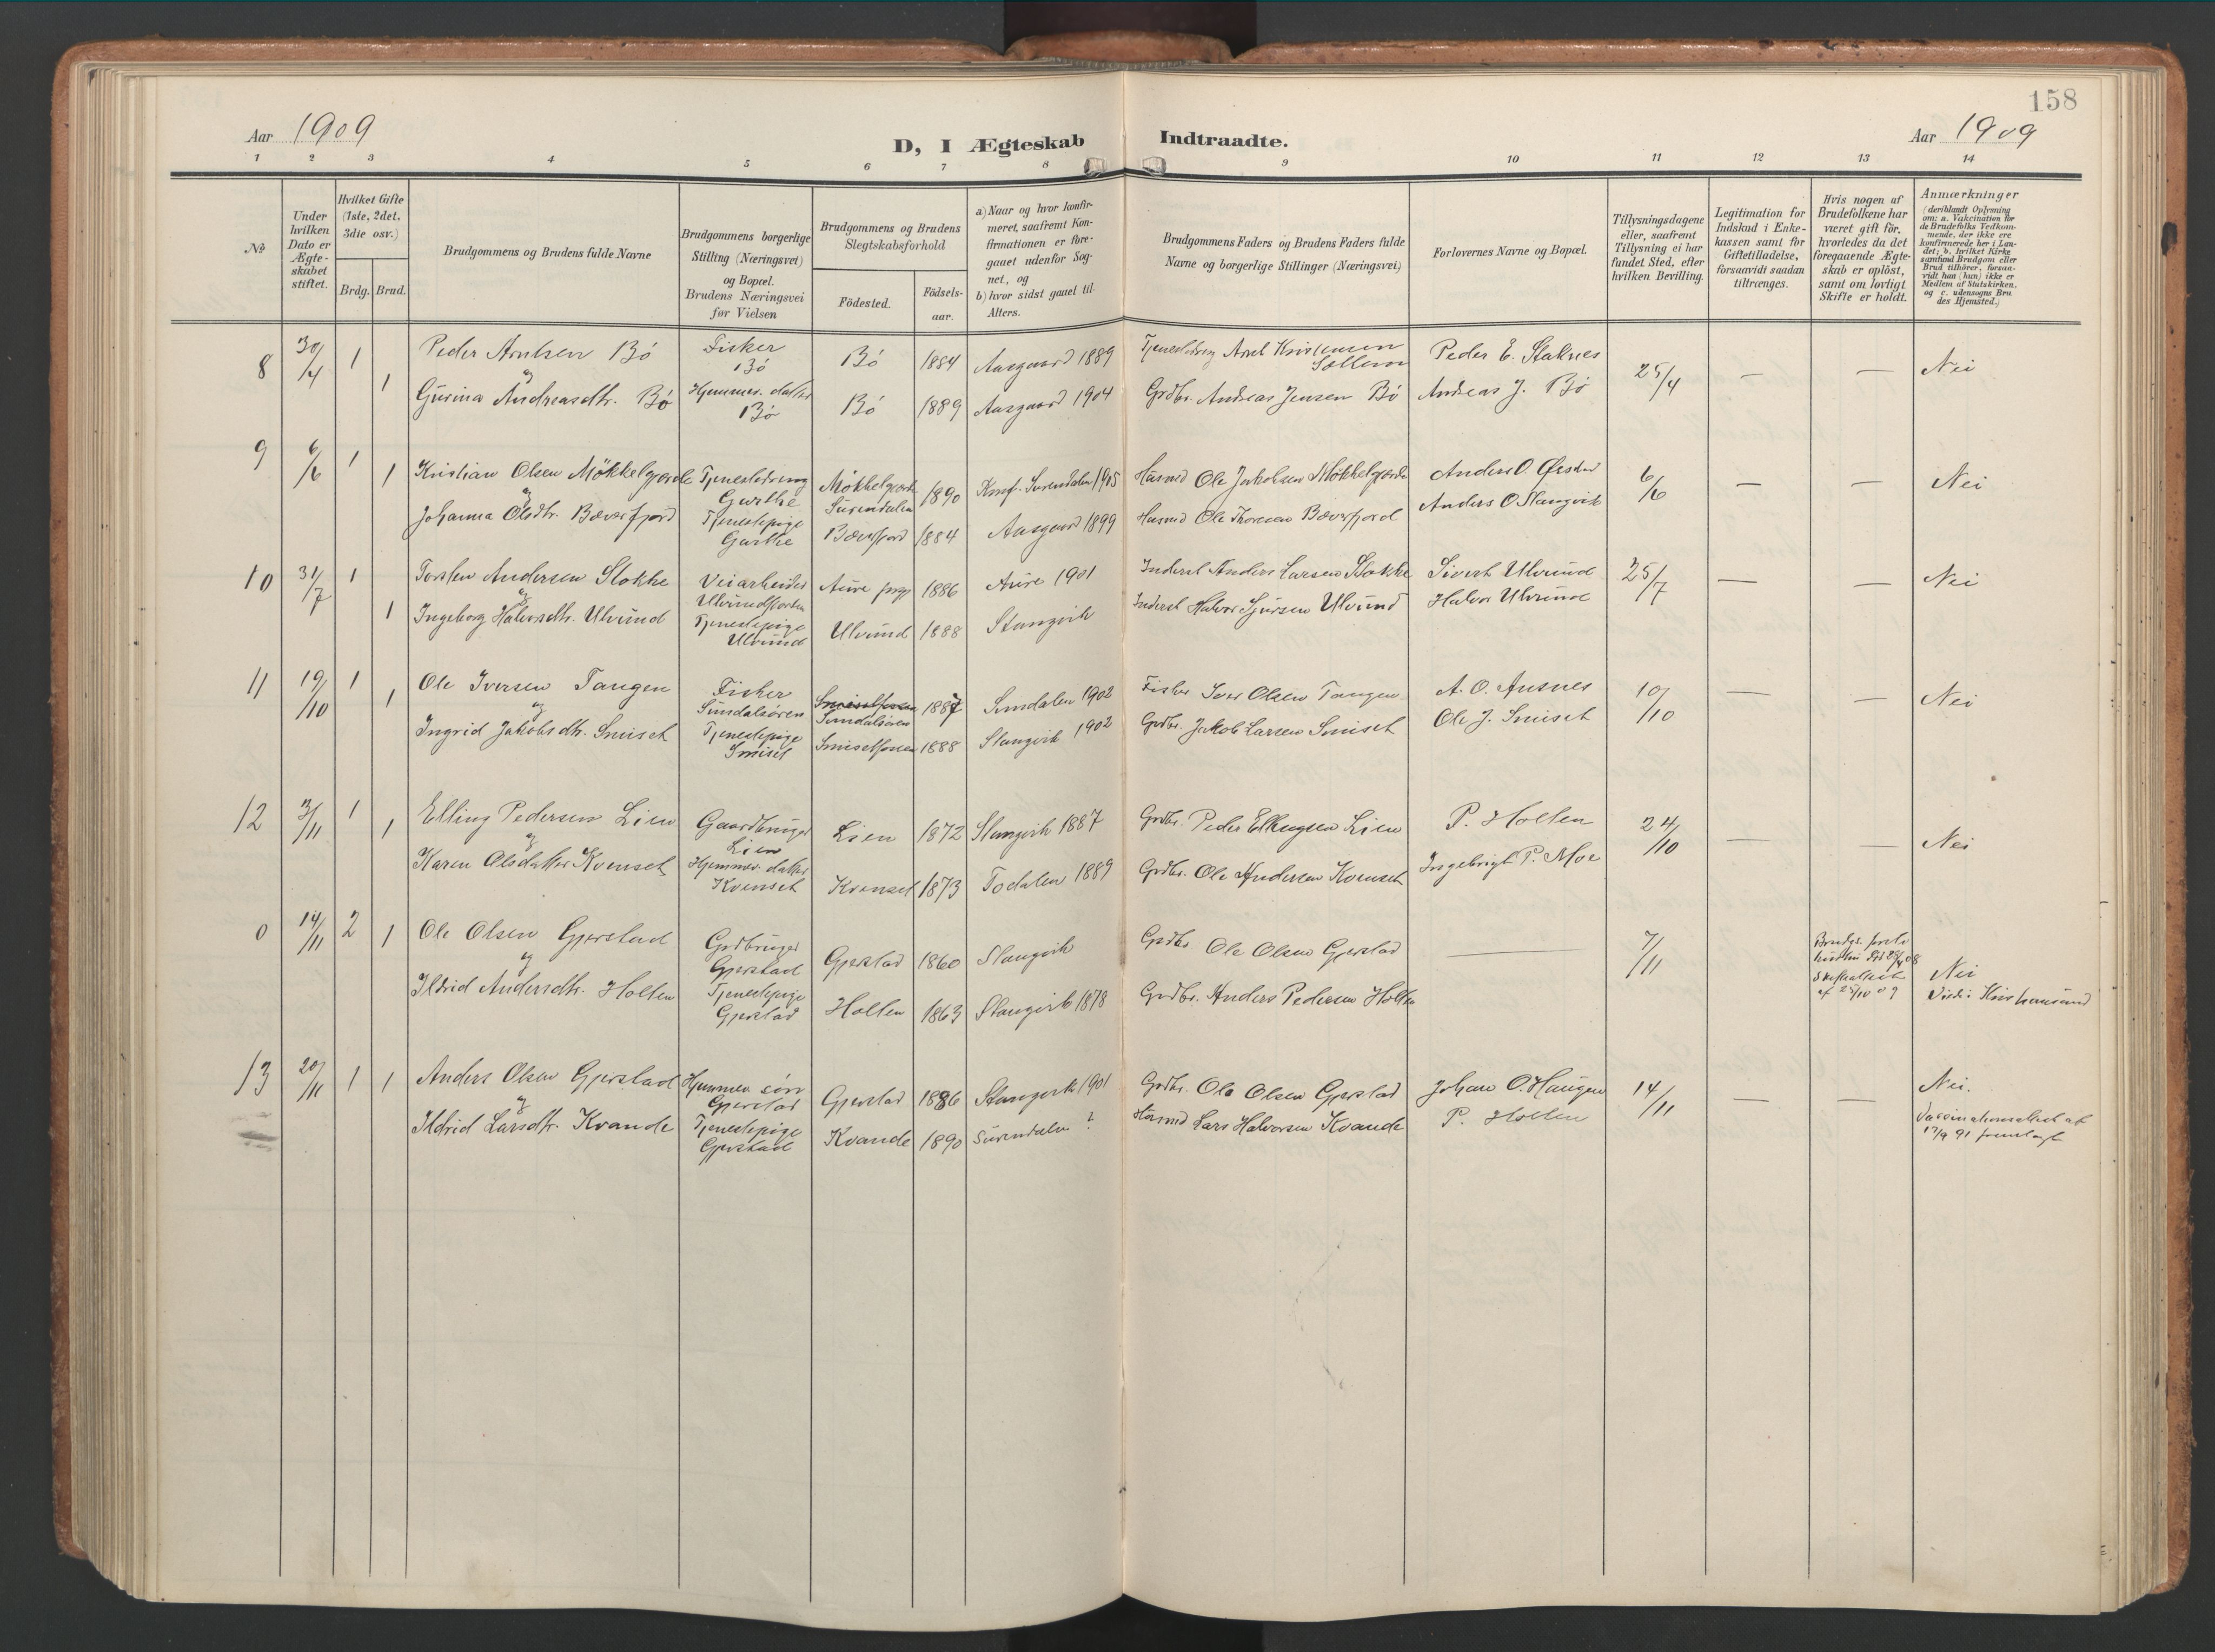 158
Aar 1909
D, I Ægteskab Indtraadte.
Aar 1909
1 2 3 4 5 6 7 8 9 10 11 12 13 14
№
Under hvilken Dato er Ægteskabet stiftet.
Hvilket Gifte (1ste, 2det, 3die osv.)
Brdg. Brud.
Brudgommens og Brudens fulde Navne
Brudgommens borgerlige Stilling (Næringsvei) og Bopæl. Brudens Næringsvei før Vielsen
Brudgommens og Brudens Slegtskabsforhold
Födested. Födsels-aar.
a) Naar og hvor konfirmeret, saafremt Konfirmationen er foregaaet udenfor Sognet, og
b) hvor sidst gaaet til Alters.
Brudgommens Faders og Brudens Faders fulde Navne og borgerlige Stillinger (Næringsvei)
Forlovernes Navne og Bopæl.
Tillysningsdagene eller, saafremt Tillysning ei har fundet Sted, efter hvilken Bevilling.
Legitimation for Indskud i Enkekassen samt for Giftetilladelse, forsaavidt saadan tiltrænges.
Hvis nogen af Brudefolkene har været gift før, hvorledes da det foregaaende Ægteskab er oplöst, samt om lovligt Skifte er holdt.
Anmærkninger (deriblandt Oplysning om: a. Vakcination for de Brudefolks Vedkommende, der ikke ere konfirmerede her i Landet; b. hvilket Kirkesamfund Brudgom eller Brud tilhörer, forsaavidt han (hun) ikke er Medlem af Statskirken. og c. udensogns Brudes Hjemsted.)
8 30/4 1 Peder Arntsen Bö Fisker Bö Bö 1884 Aasgaard 1889 Tjenestedreng Arnt Kristensen Peder E. Staknes 25/4 — — Nei
og
1 Gurina Andreasdtr. Bö Hjemmev. datter Bö Bö 1889 Aasgaard 1904 Grdbr. Andreas Jensen Bö Andreas J. Bö
9 6/6 1 Kristian Olsen Mökkelgjerde Tjenestedreng Mökkelgjerde Surendalen 1890 Konf. Surendalen 1905 Husmd Ole Jakobsen Mökkelgjerde Anders O. 6/6 — — Nei
og
1 Johanna Olsdtr. Bæverfjord Tjenestepige Bæverfjord 1884 Aasgaard 1899 Husmd Ole Thoresen Bæverfjord Anders O Stangvik
10 31/7 1 Torsten Andersen Stokke Veiarbeider Aure 1886 Aure 1901 Inderst Anders Larsen Stokke Sivert Ulvund 25/7 — — Nei
og
1 Ingeborg Halvorsdtr. Ulvund Tjenestepige Ulvund Ulvund 1888 Stangvik Inderst Halvor Sjursen Ulvund Halvor Ulvund
11 19/10 1 Ole Iversen Tangen Fisker Sundalsören Sundalsören 1887 Sundalen 1902 Fisker Iver Olsen Tangen A. O. Ansnes 10/10 — — Nei
og
1 Ingrid Jakobsdtr. Smiset Tjenestepige Smiset 1888 Stangvik 1902 Grdbr. Jakob Larsen Smiset Ole J. Smiset
12 3/11 1 Elling Pedersen Lien Gaardbruger Lien Lien 1872 Stangvik 1887 Grdbr. Peder Ellingsen Lien P. Holten 24/10 — — Nei
og
1 Karen Olsdatter Kvenset Hjemmev. datter Kvenset Kvenset 1873 Todalen 1889 Grdbr. Ole Andersen Kvenset Ingebrigt P. Moe
0 14/11 2 Ole Olsen Gjerstad Grdbruger Gjerstad Gjerstad 1860 Stangvik Grdbr Ole Olsen Gjerstad — 7/11 Brudg. Skifteattest af 25/10 09 Nei
og
1 Ildrid Andersdtr. Holten Tjenestepige Gjerstad Holten 1863 Stangvik 1878 Grdbr. Anders Pedersen Holten Viede i Kristiansund
13 20/11 1 Anders Olsen Gjerstad Hjemmev. sön Gjerstad Gjerstad 1886 Stangvik 1901 Grdbr. Ole Olsen Gjerstad Johan O. Haugen 14/11 — — Nei.
og
1 Ildrid Larsdtr. Kvande Tjenestepige Gjerstad Kvande 1890 Surendalen ? Husmd Lars Halvorsen Kvande P. Holten Vaccinationsattest af 17/9 91 fremlagt